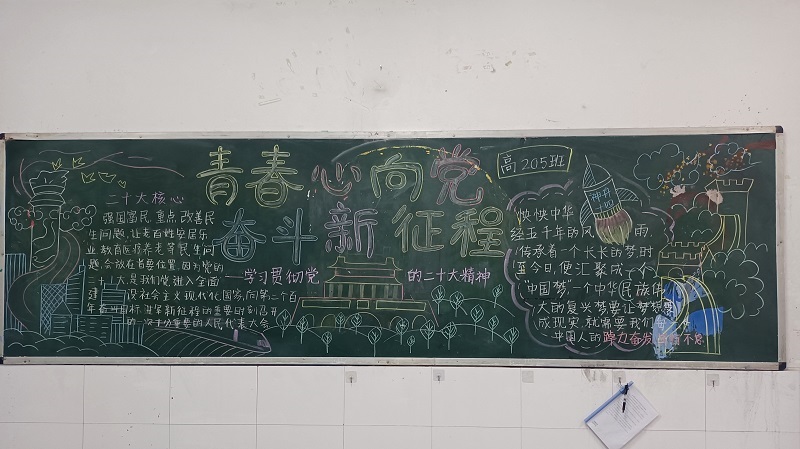 青春心向党
奋斗新征程
高205班
学习贯彻党的二十大精神
二十大核心
强国富民重点,改善民
生问题,让老百姓安居乐
业,教育医疗养老等民生问
题,会放在首要位置,因为党的
二十大,是我们党进入全面
建设社会主义现代化国家,向第二个百
年奋斗目标进军新征程的重要时刻召开
的一次十分重要的人民代表大会
神舟
十四
泱泱中华
经五千年的风雨,
传承着一个长长的梦,时
至今日,便汇聚成一个
"中国梦"一个中华民族伟
大的复兴梦要让梦想要
成现实,就需要我们每
中国人的踔力奋发